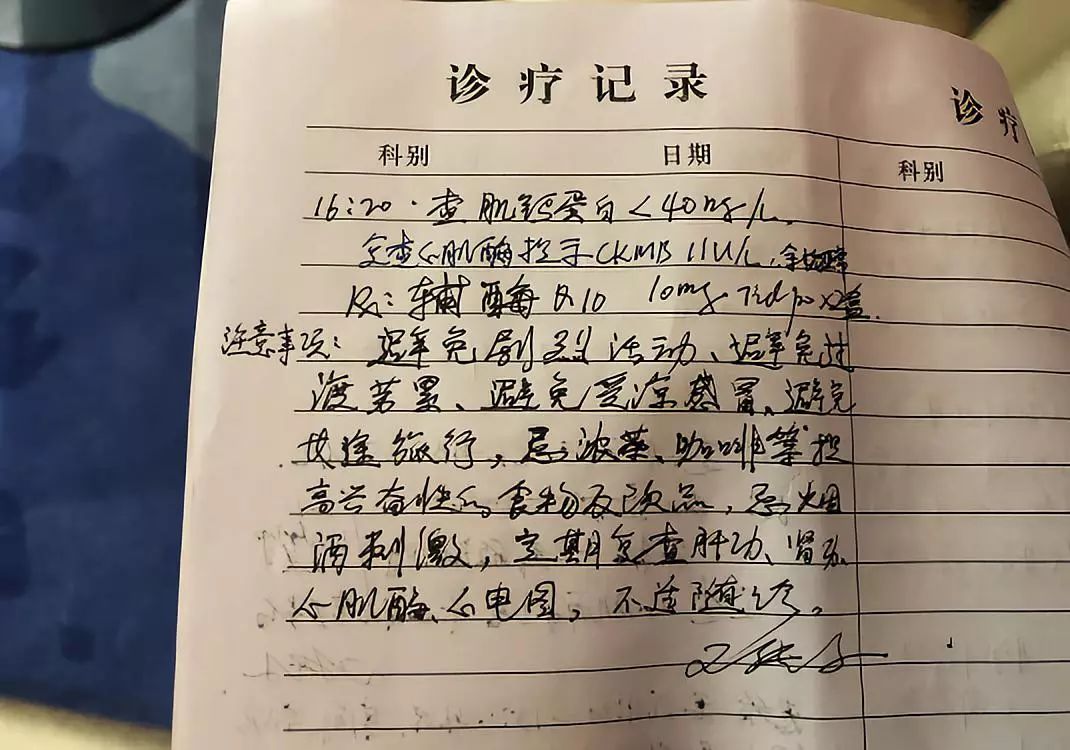 诊疗记录
诊疗
科别 日期
科别
16:20. 查肌钙蛋白<40ng/L,
复查心肌酶提示CKMB 11U/L,余均正常
Rx: 辅酶Q10 10mg Tid po x2盒.
注意事项: 避免剧烈活动、避免过
渡劳累、避免受凉感冒、避免
长途旅行,忌浓茶、咖啡等提
高兴奋性的食物及饮品,忌烟
酒刺激,定期复查肝功、肾功、
心肌酶、心电图,不适随诊。